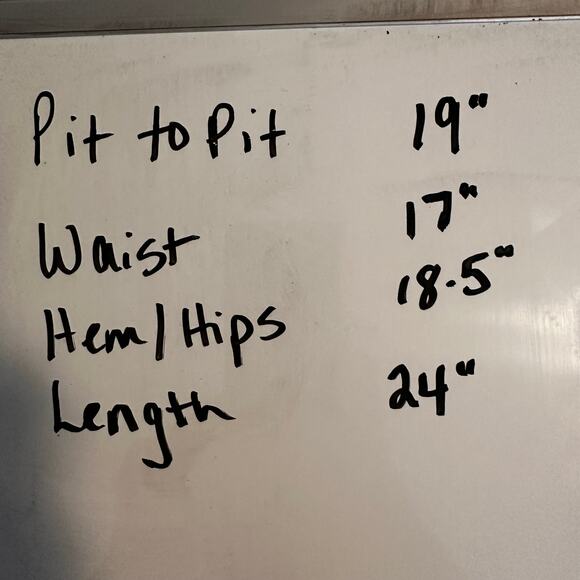 Pit to Pit 19"
Waist 17"
Hem/Hips 18.5"
Length 24"